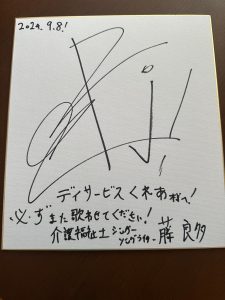 2024. 9.8!
デイサービス くれあ様へ!
必ずまた歌わせてください!
介護福祉士シンガー
ソングライター 藤 良多